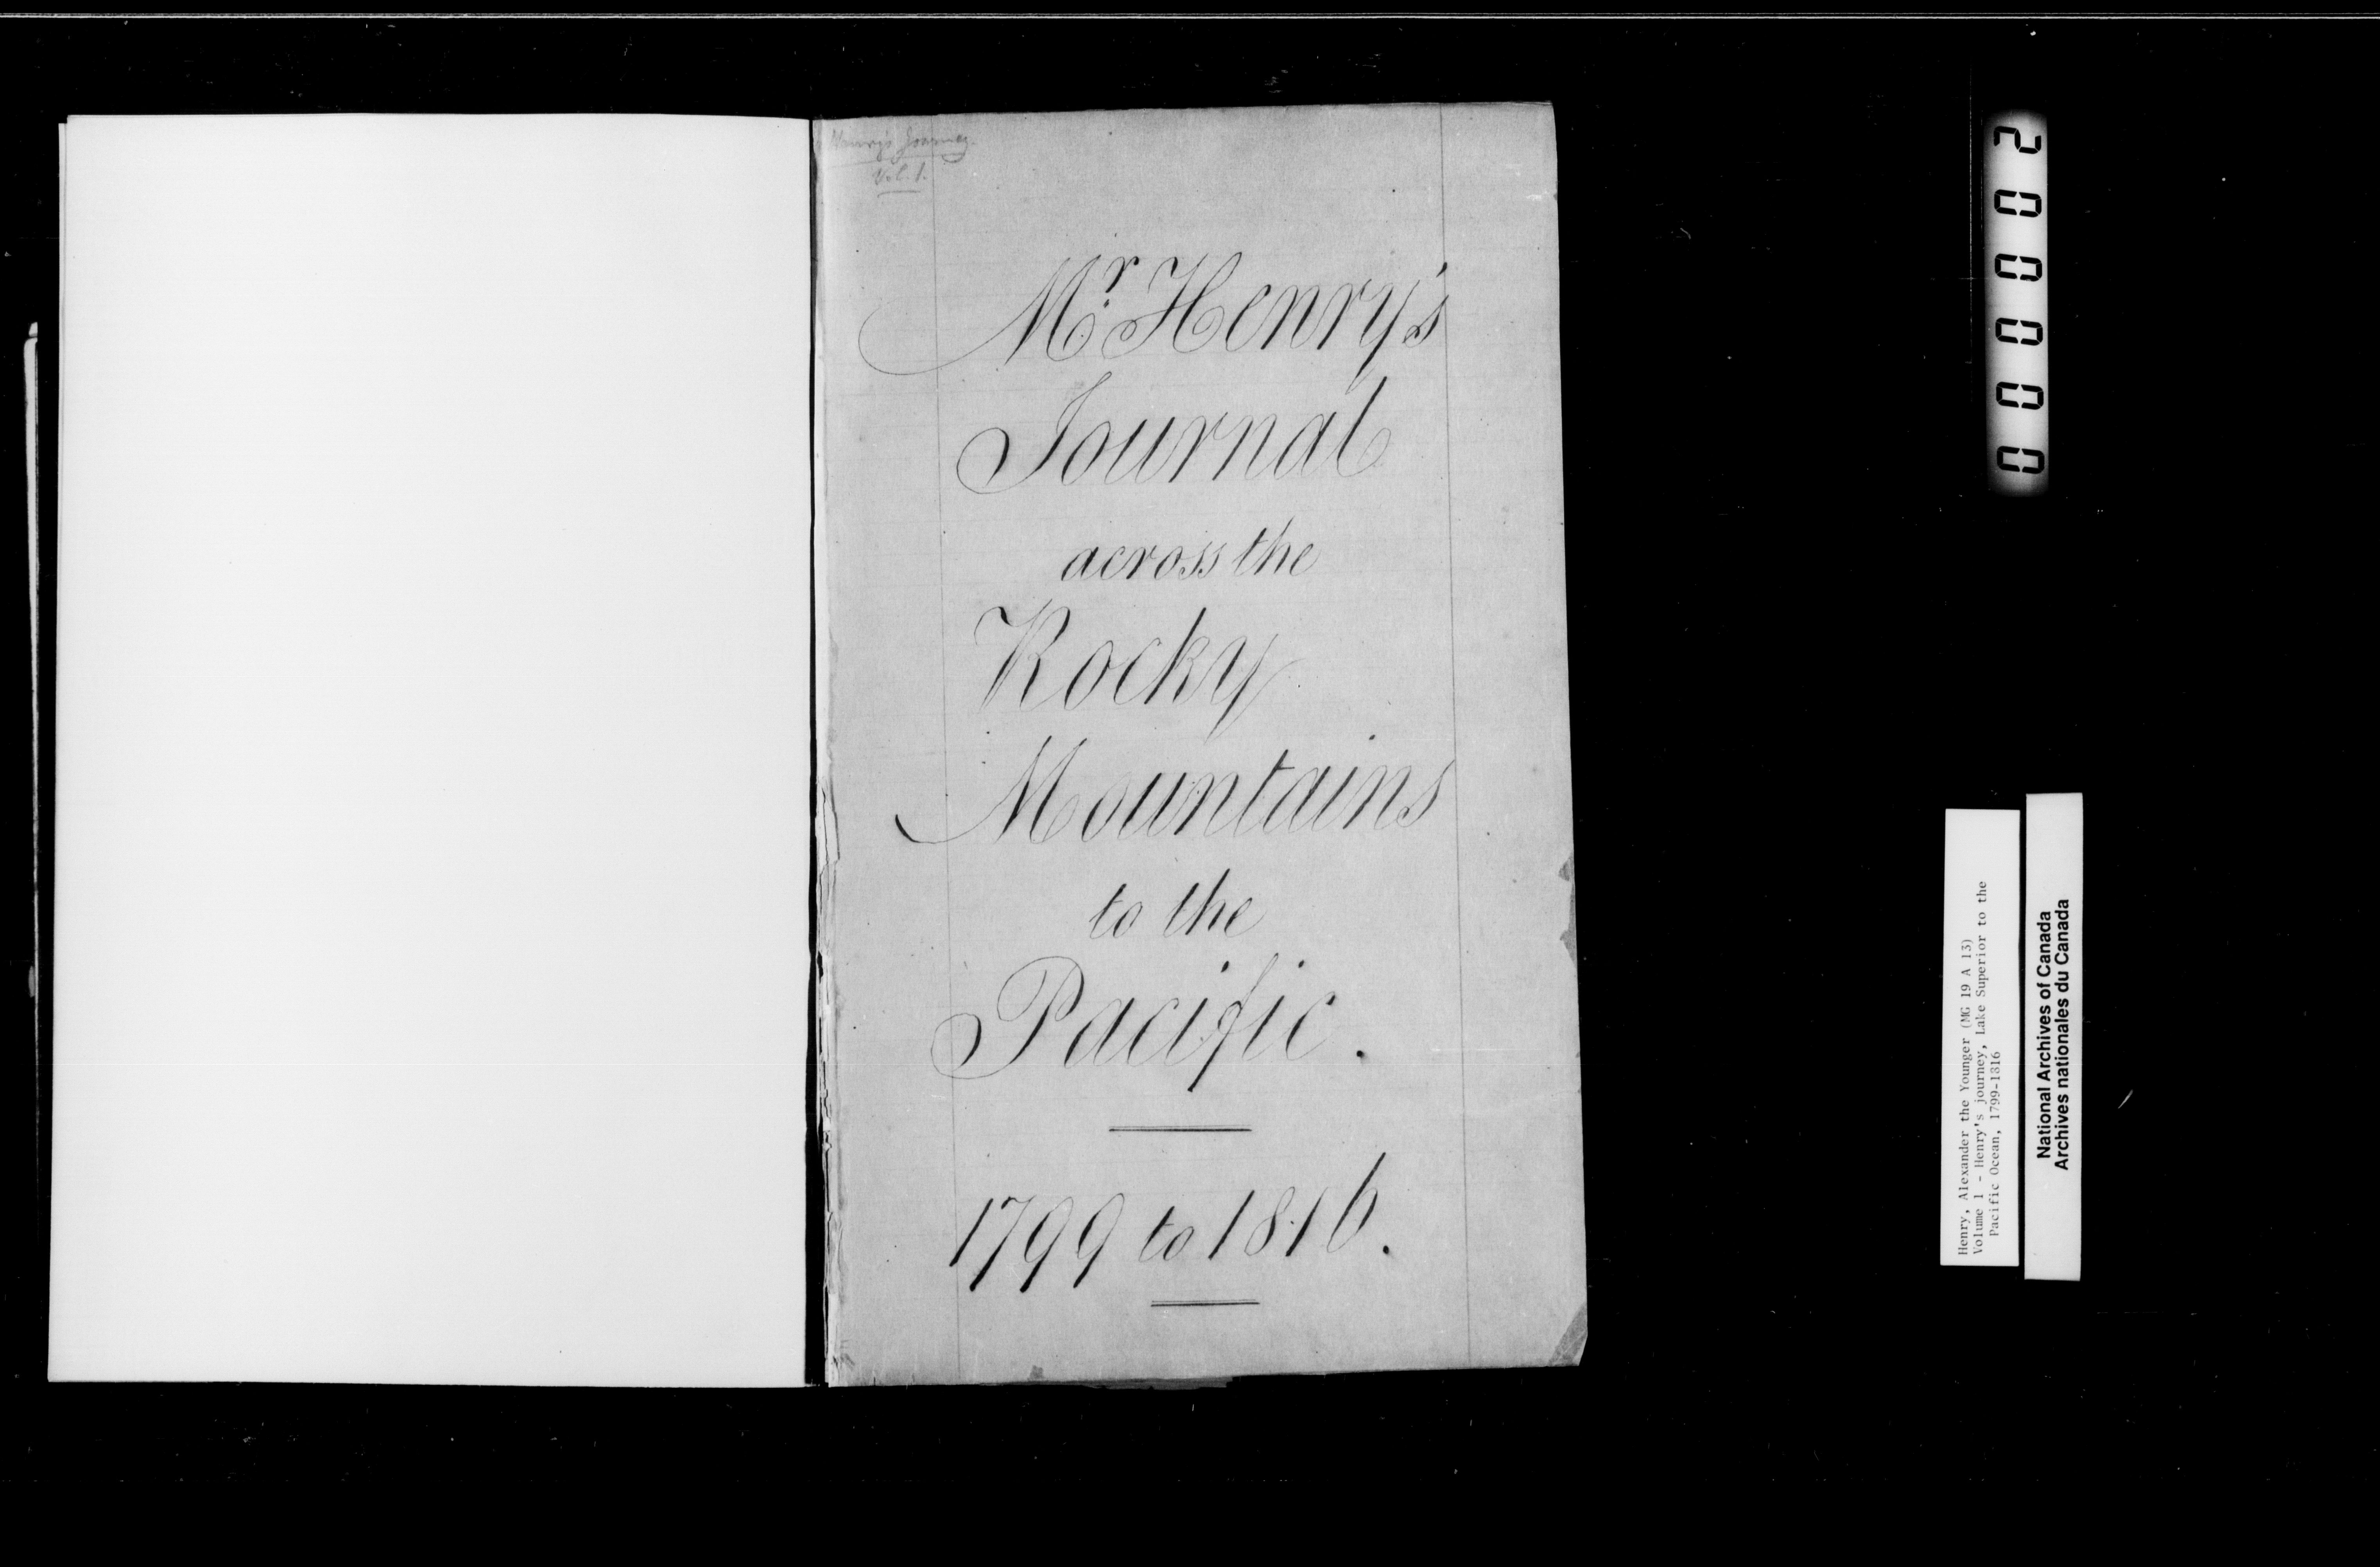 Henry's Journey.
Vol. 1.
Mr. Henry's
Journal
across the
Rocky
Mountains
to the
Pacific.
1799 to 1816.
000002
Henry, Alexander the Younger (MG 19 A 13)
Volume 1 - Henry's journey, Lake Superior to the
Pacific Ocean, 1799-1816
National Archives of Canada
Archives nationales du Canada